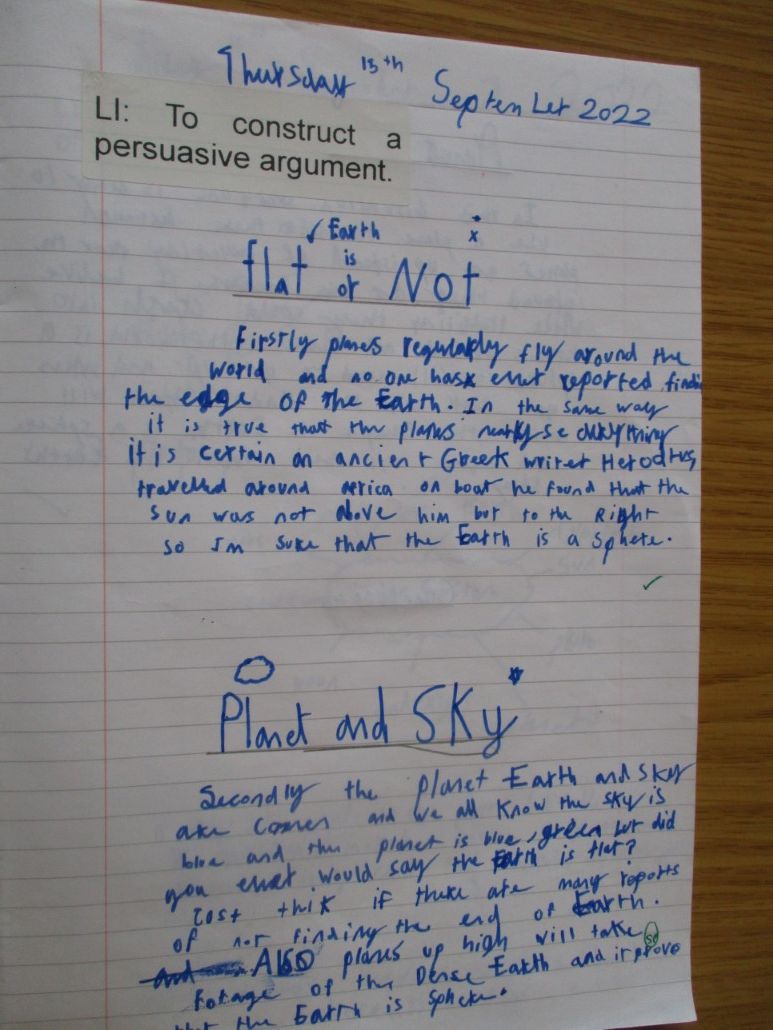 Thursday 15th September 2022
LI: To construct a
persuasive argument.
Earth
flat is or Not
Firstly planes regularly fly around the
world and no one hask ever reported findi
the edge of The Earth. In the same way
it is true that the planes
it is certain an ancient Greek writer Herodtus,
travelled around africa on boat he found that the
sun was not above him but to the Right
so I'm sure that the Earth is a sphere.
Planet and Sky
Secondly the planet Earth and sky
are and we all know the sky is
blue and the planet is blue, green but did
you ever would say the Earth is flat?
Cost thik if there are many reports
of not finding the end of Earth.
Also planes up high will take
fotage of the Dense Earth and it prove
that the Earth is sphere.